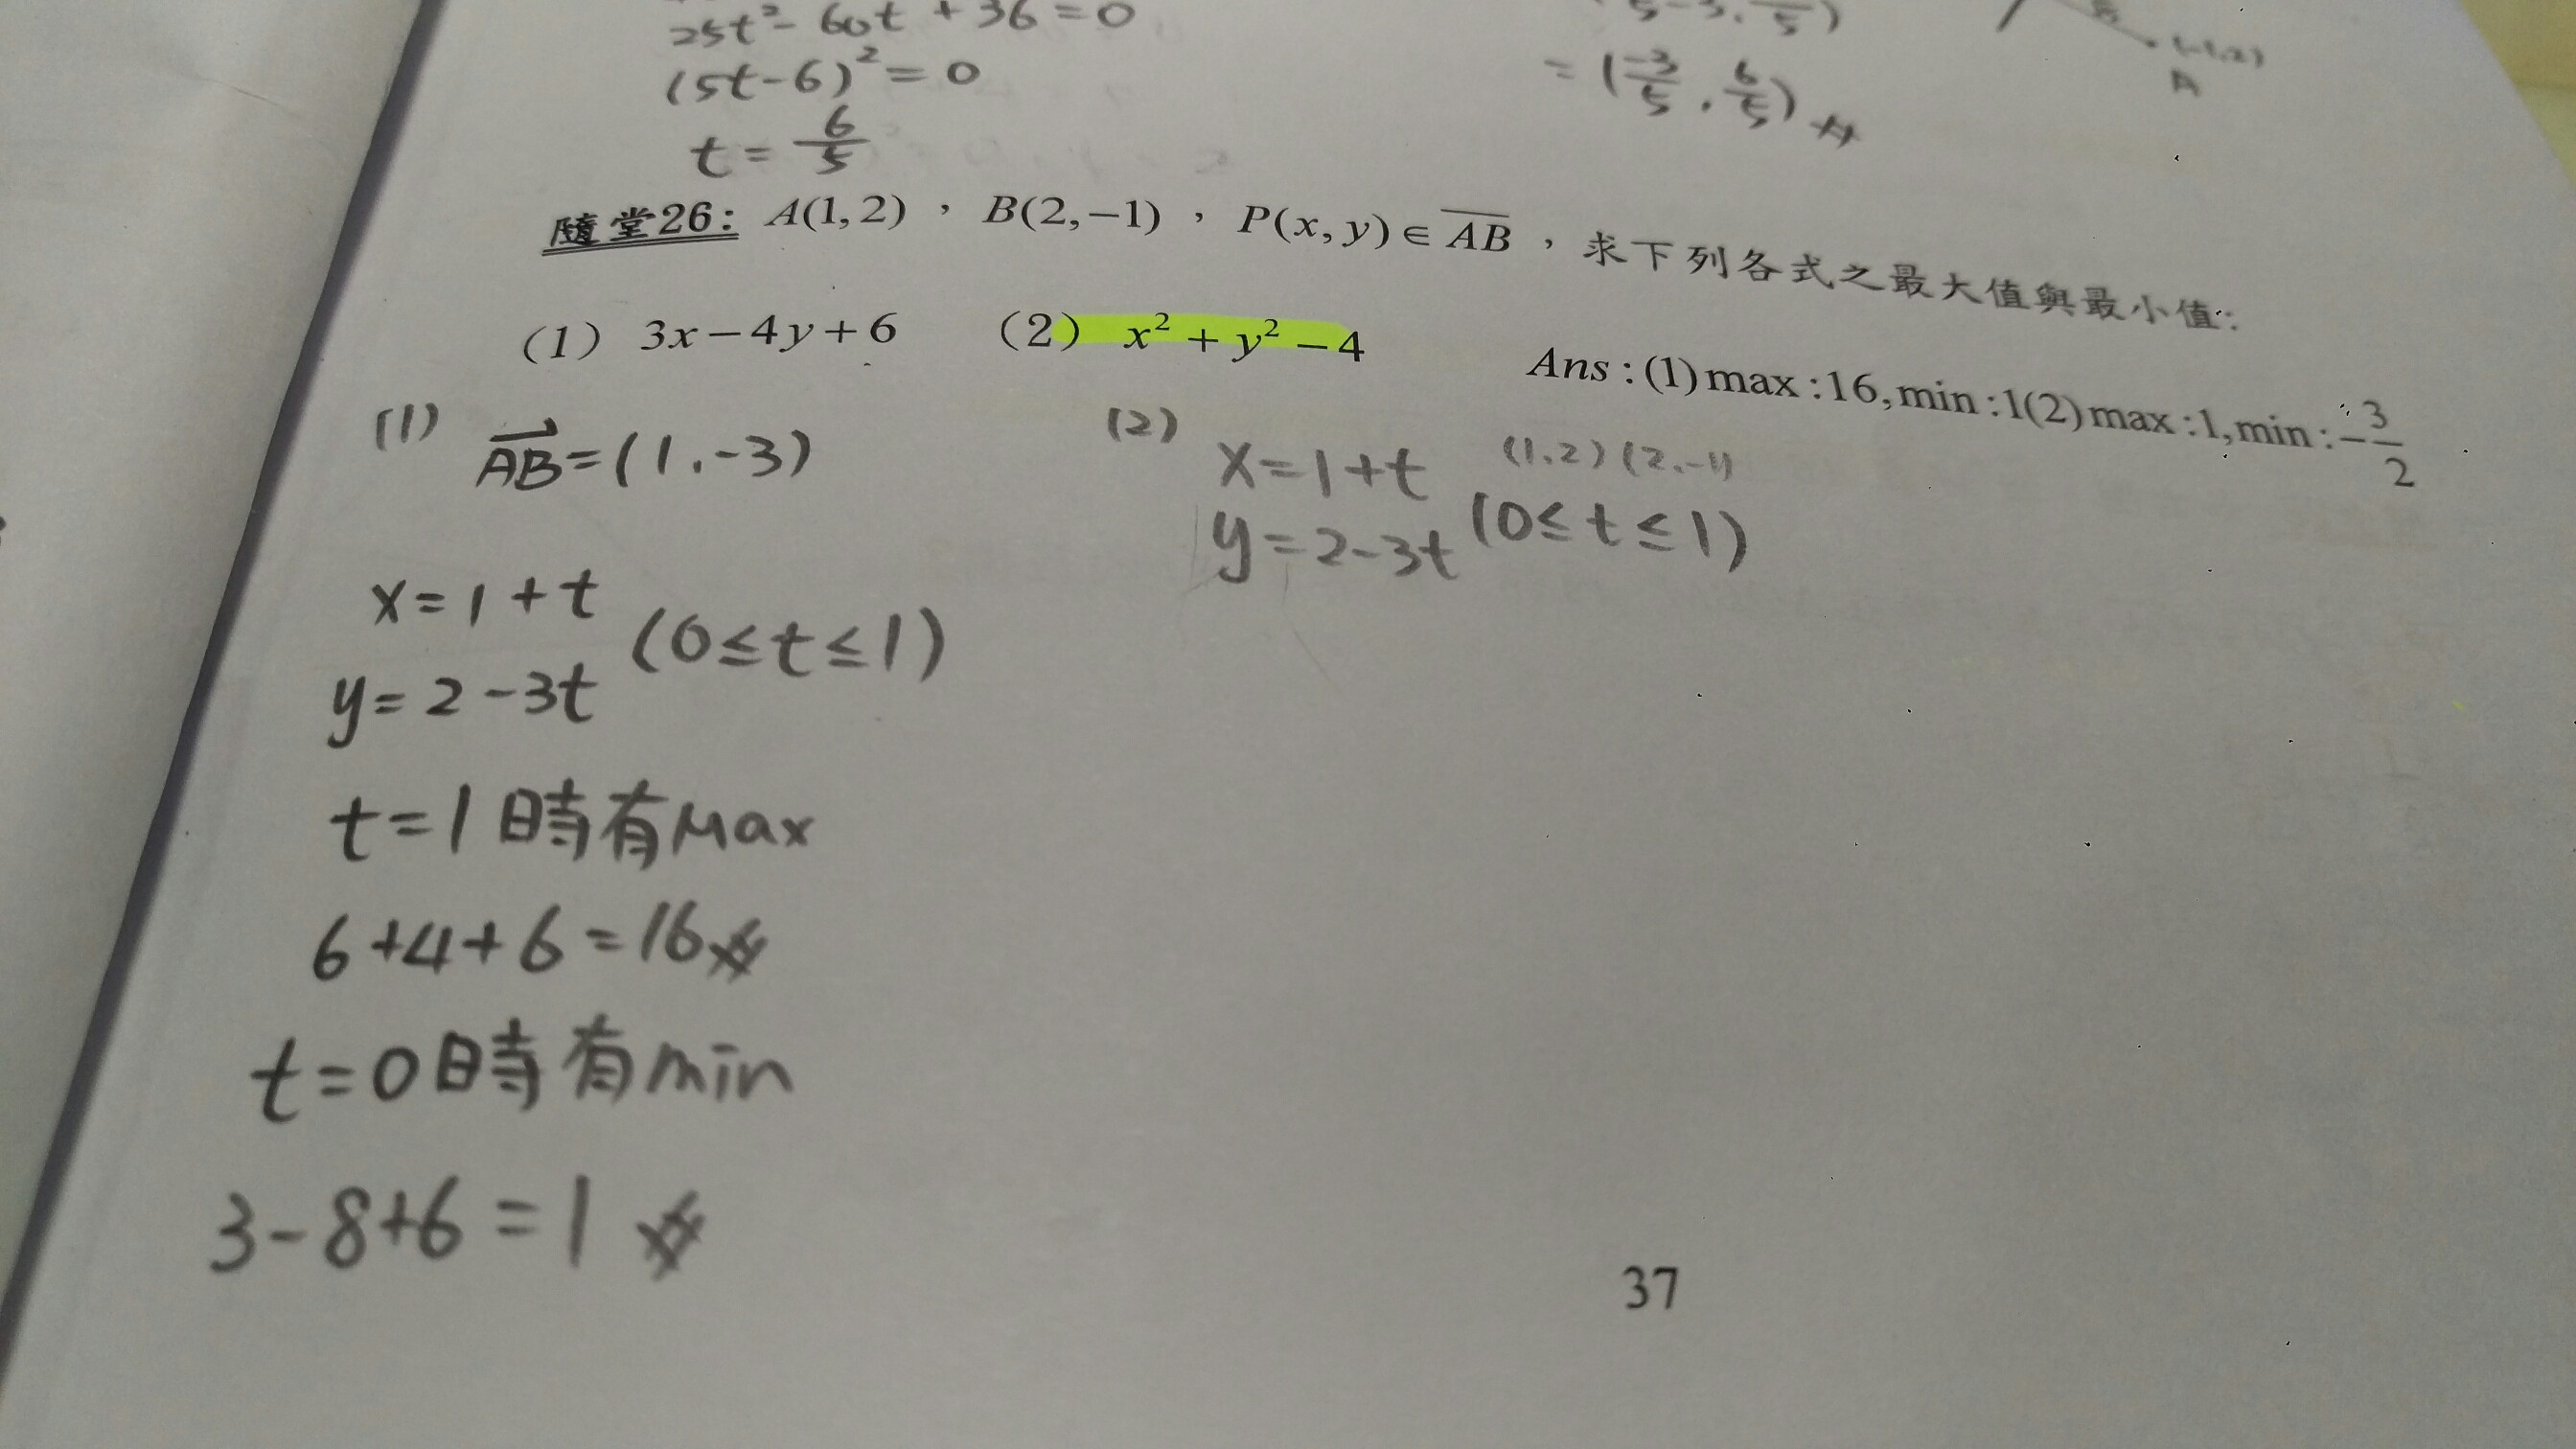 25t² - 60t + 36 = 0
(5t-6)² = 0
t = 6/5
= (-3/5, 6/5)
(-1,2)
A
隨堂26: A(1,2), B(2,-1), P(x,y)∈AB, 求下列各式之最大值與最小值:
(1) 3x-4y+6 (2) x²+y²-4
Ans:(1)max:16,min:1(2)max:1,min:-3/2
(1) AB=(1,-3)
x=1+t
y=2-3t (0≤t≤1)
t=1時有Max
6+4+6=16
t=0時有min
3-8+6=1
(2) x=1+t (1,2)(2,-1)
y=2-3t (0≤t≤1)
37